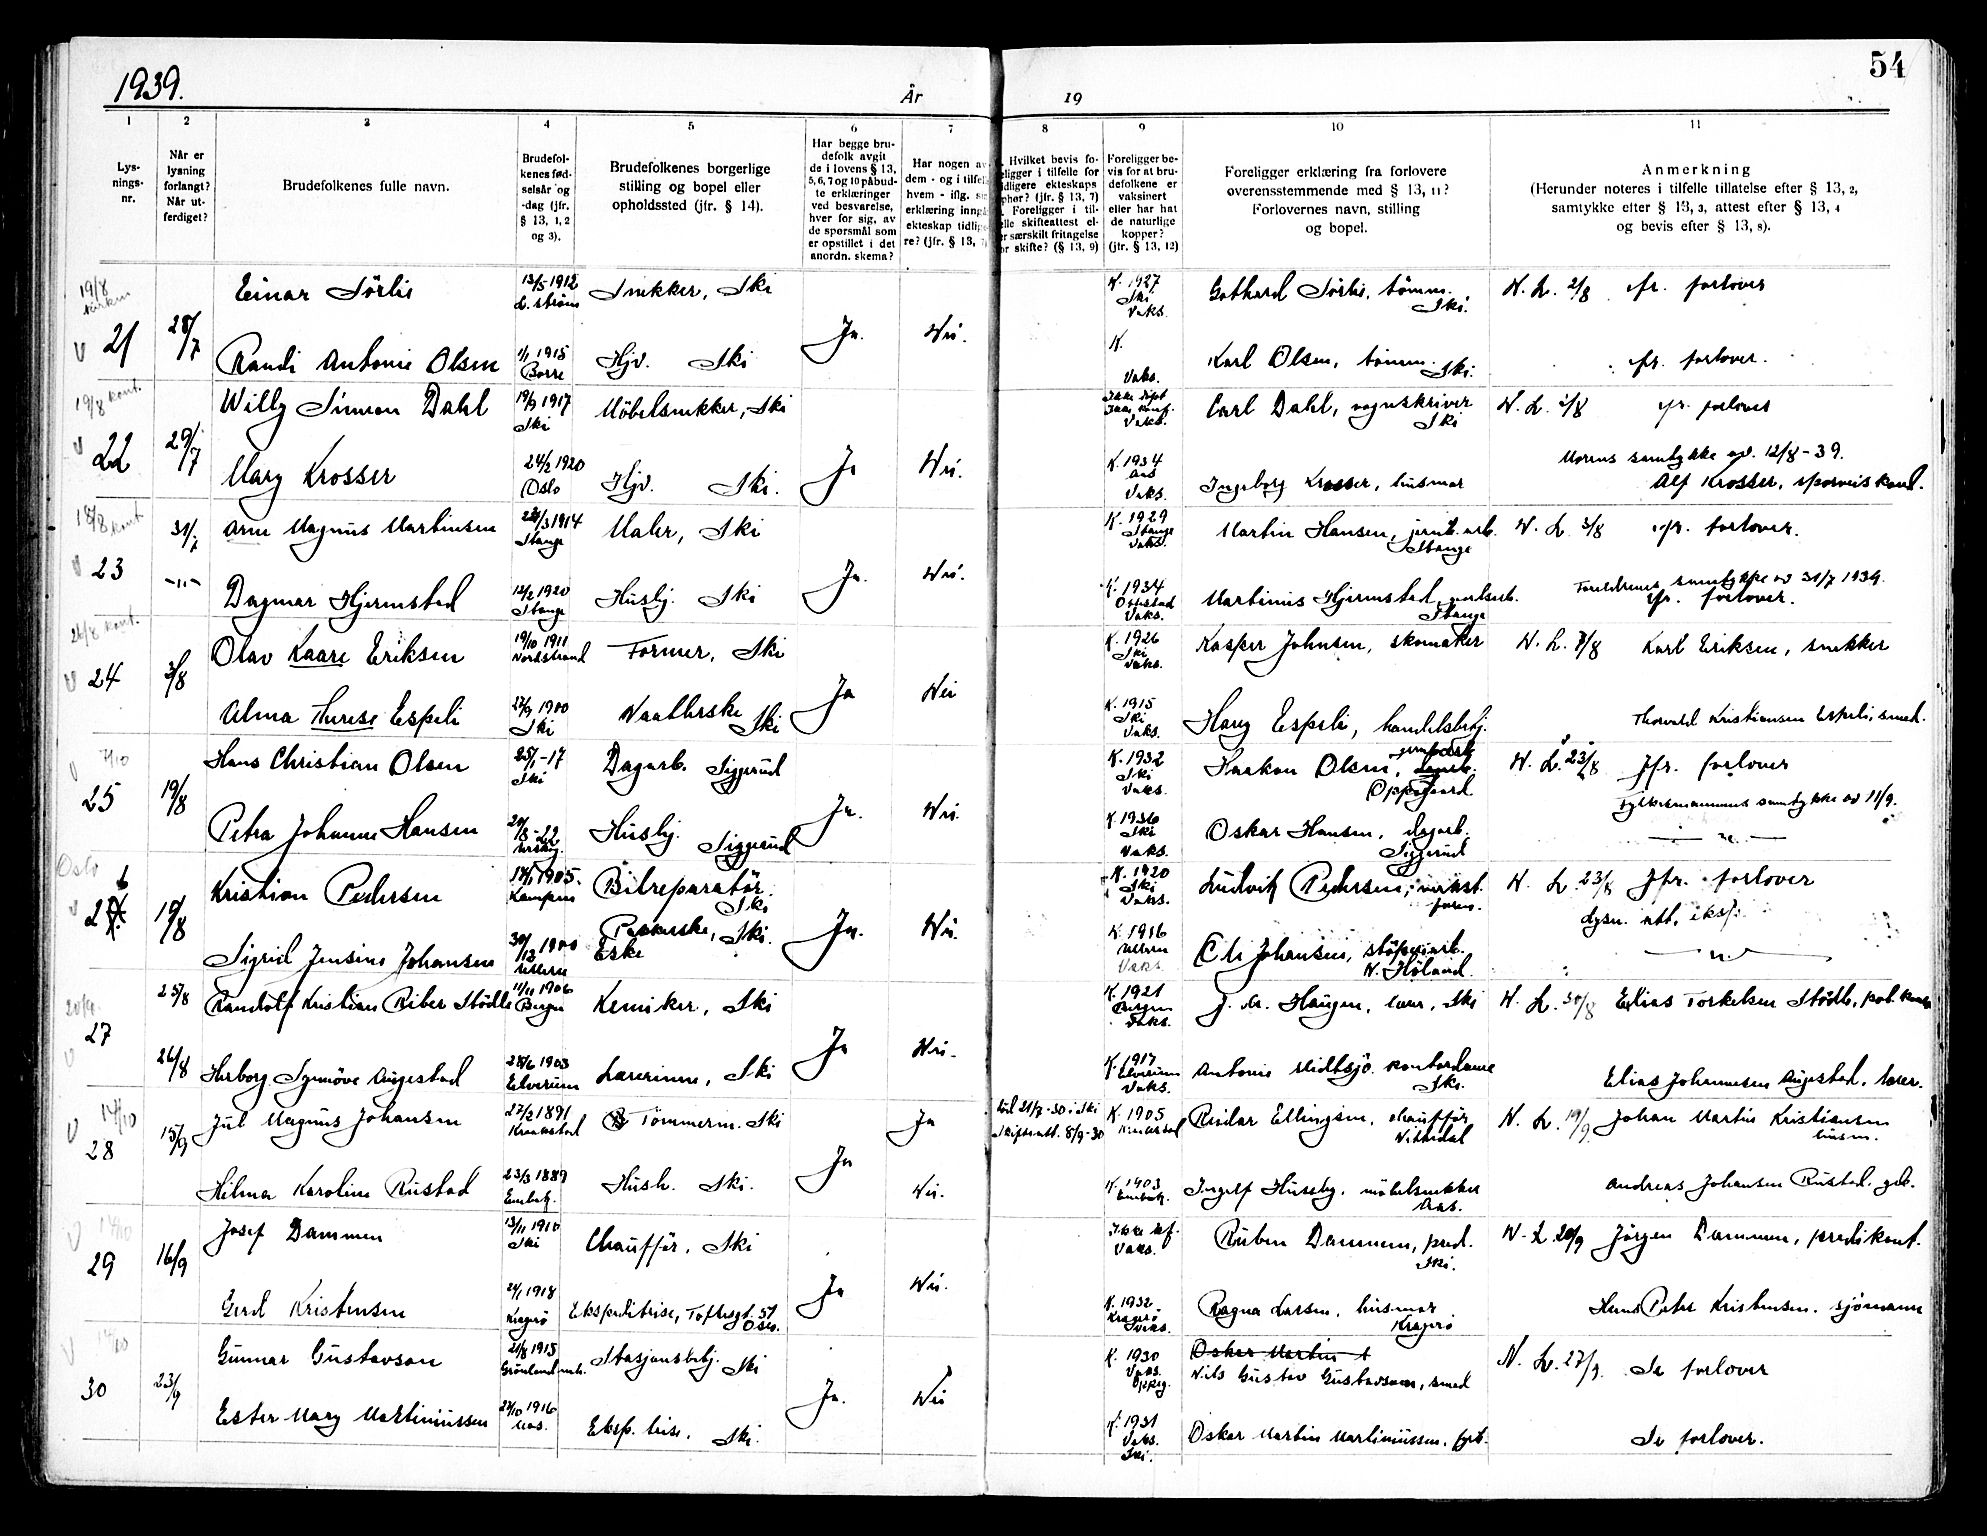 1939.
År
19
54
1
2
3
4
5
6
7
8
9
10
11
Lys-
nings-
nr.
Når er
lysning
forlangt?
Når ut-
ferdiget?
Brudefolkenes fulle navn.
Brudefol-
kenes fød-
selsår og
-dag (jfr.
§ 13, 1, 2
og 3).
Brudefolkenes borgerlige
stilling og bopel eller
opholdssted (jfr. § 14).
Har begge bru-
defolk avgit
de i lovens § 13,
5, 6, 7 og 10 påbud-
te erklæringer
ved besvarelse,
hver for sig, av
de spørsmål som
er opstillet i det
anordn. skema?
Har nogen av
dem - og i tilfel
hvem - iflg. si
erklæring inngå
ekteskap tidlige
re? (jfr. § 13, 7)
Hvilket bevis fo-
eligger i tilfelle for
idligere ekteskaps
phør? (jfr. § 13, 7)
Foreligger i til-
elle skifteattest el-
er særskilt fritagelse
or skifte? (§ 13, 9)
Foreligger be-
vis for at bru-
defolkene er
vaksinert
eller har hat
de naturlige
kopper?
(jfr. § 13, 12)
Foreligger erklæring fra forlovere
overensstemmende med § 13, 11?
Forlovernes navn, stilling
og bopel.
Anmerkning
(Herunder noteres i tilfelle tillatelse efter § 13, 2,
samtykke efter § 13, 3, attest efter § 13, 4
og bevis efter § 13, 8).
19/8
V 21 28/7
Einar Sørlie 13/5-1912 Snekker, Ski
Ja. Nei.
K. 1927 Ski Vaks.
Gothard Sørlie, tømm. Ski.
N. L. 2/8 jfr. forlover
Randi Antonie Olsen 1/1 1915 Borre Hjv. Ski
K. Vaks.
Karl Olsen, tømm. Ski.
jfr. forlover.
19/8 kont.
V 22 29/7
Willy Simon Dahl 19/9 1917 Ski Møbelsnekker, Ski
Ja Nei.
Vaks.
Carl Dahl, vognskriver Ski
N. L. jfr. forlover
Mary Krosser 24/2 1920 Oslo Hjv. Ski.
K. 1934 Aas Vaks.
Ingeborg Krosser, husmor
Morens samtykke av 12/8-39.
Alf Krosser,
kont.
V 23 31/7 -"-
Arne Magnus Martinsen 1914 Stange Maler, Ski
Ja. Nei.
K. 1929 Stange Vaks.
Martin Hansen, Stange
N. L. 3/8 jfr. forlover.
Dagmar Hjermstad 12/2 1920 Stange Husbj. Ski
K. 1934 Ottestad Vaks.
Martinus Hjermstad, Stange
Foreldrenes samtykke av 31/7 1939.
jfr. forlover.
26/8 kont.
V 24 3/8
Olav Kaare Eriksen 19/10 1911 Nordstrand Former, Ski
Ja Nei
K. 1926 Ski Vaks.
Kasper Johnsen, skomaker
N. L. 7/8 Karl Eriksen, snekker
Alma Therese Espeli 27/9 1900 Ski Ski
K. 1915 Ski Vaks.
Harry Espeli, handelsbetj.
Thorvald Kristiansen Espeli, smed.
7/10
V 25 19/8
Hans Christian Olsen 25/1-17 Ski Dagarb. Siggerud
Ja. Nei.
K. 1932 Ski Vaks.
Haakon Olsen, Oppegaard
N. L. 23/8 Jfr. forlover
Petra Johanne Hansen Husbj. Siggerud
K. 1936 Ski Vaks.
Oskar Hansen, dagarb. Siggerud
Fylkesmannens samtykke av 11/9.
— " —
Oslo
V 26 19/8
Kristian Pedersen 1905. Kampen Bilreparatør. Ski
Ja. Nei.
K. 1920 Ski Vaks.
Ludvik Pedersen,
N. L. 23/8 Jfr. forlover
lysn. att. eksp.
Sigrid Jensine Johansen 30/12 1900 Eske Ski.
K. 1916 Vaks.
Johansen, støperiarb. N. Høland.
— " —
20/9.
V 27 25/8 26/8
Randolf Kristian Riber Stødle 11/11 1906 Bergen Kemiker, Ski
Ja Nei.
K. 1921 Bergen Vaks.
Haugen, lærer, Ski
N. L. 30/8 Elias Torkelsen Stødle,
Herborg Synnøve Augestad 28/6 1903 Elverum Lærerinne, Ski
K. 1917 Elverum Vaks.
Antonie Midtsjø. Ski.
Elias Johannesen Augestad. lærer.
14/10
V 28 15/9
Jul Magnus Johansen 27/2 1891 Kraakstad Tømmerm. Ski
Ja Ja
21/7-30 i Ski Skifteatt. 8/9-30
K. 1905 Kraakstad
Reidar Ellingsen, chauffør Nittedal
N. L. 19/9. Johan Martin Kristiansen husm.
Hilma Karoline Rustad 23/3 1889 Enebak. Hush. Ski.
Nei.
K. 1903 Enebak.
Ingolf Hussby. møbelsnekker Aas.
Andreas Johansen Rustad. gbr.
14/10
V 29 16/9
Josef Dammen 13/11 1910 Ski Chauffør, Ski
Ja Nei.
Ikke kf. Vaks.
Ruben Dammen, pred. Ski.
N. L. 20/9 Jørgen Dammen, predikant.
Gerd Kristensen 24/1 1918 Kragerø Ekspeditrise, Toftesgt. 57 Oslo.
K. 1932. Kragerø Vaks.
Ragna Larsen, husmor Kragerø
Hans Peter Kristensen. sjømann
14/10
V 30 23/9
Gunnar Gustavson 21/8 1915 Stasjonsbetj. Ski
Ja. Nei
K. 1930 Vaks. Oppeg.
Oskar Martin
Nils Gustav Gustavson, smed
N. L. 27/9. Se forlover
Ester Mary Martiniussen 1916 Aas. Eksp. trise. Ski.
K. 1931 Vaks. Ski.
Oskar Martin Martiniussen,
Se forlover.